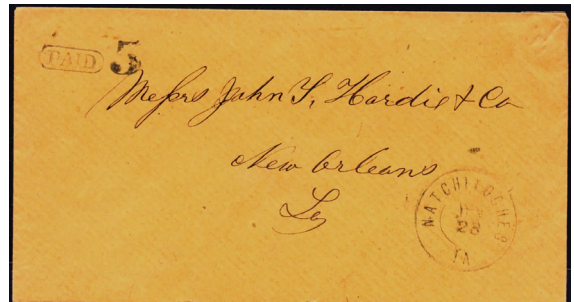 PAID 5
Messrs John T. Hardie & Co
New Orleans
La
NATCHITOCHES
28
LA